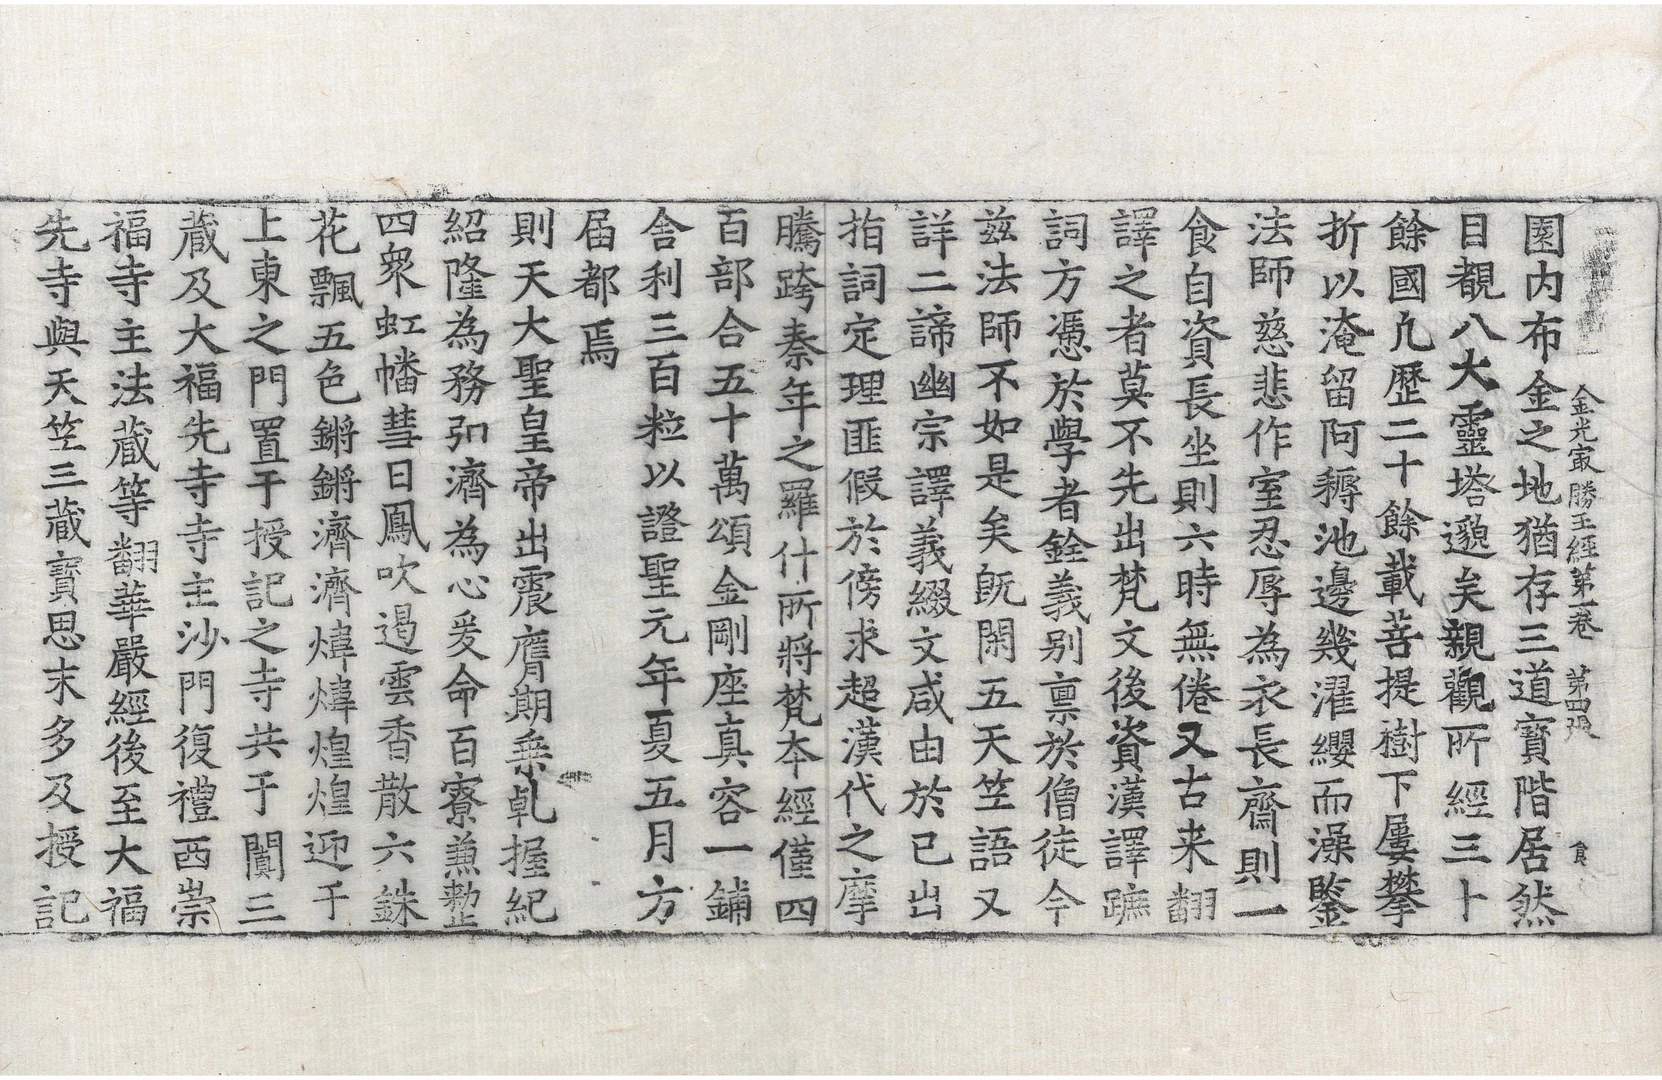 金光㝡勝王經第一卷 第四張 食
園内布金之地猶存三道寳階居然
目覩八大靈塔邈矣親觀所經三十
餘國凢歷二十餘載菩提樹下屢攀
折以淹留阿耨池邊幾濯纓而澡鑒
法師慈悲作室忍辱為衣長齋則一
食自資長坐則六時無倦又古来翻
譯之者莫不先出梵文後資漢譯蹠
詞方慿於學者銓義别禀於僧徒今
兹法師不如是矣旣閑五天笁語又
詳二諦幽宗譯義綴文咸由於已出
指詞定理匪假於傍求超漢代之摩
騰跨秦年之羅什所將梵夲經僅四
百部合五十萬頌金剛座真容一鋪
舎利三百粒以證聖元年夏五月方
届都焉
則天大聖皇帝出震膺期乗乹握紀
紹隆為務弘濟為心爰命百寮兼勑
四衆虹幡彗日鳳吹遏雲香散六銖
花飄五色鏘鏘濟濟煒煒煌煌迎千
上東之門置于授記之寺共于闐三
藏及大福先寺寺主沙門復禮西崇
福寺主法藏等翻華嚴經後至大福
先寺與天笁三藏寳思末多及授記